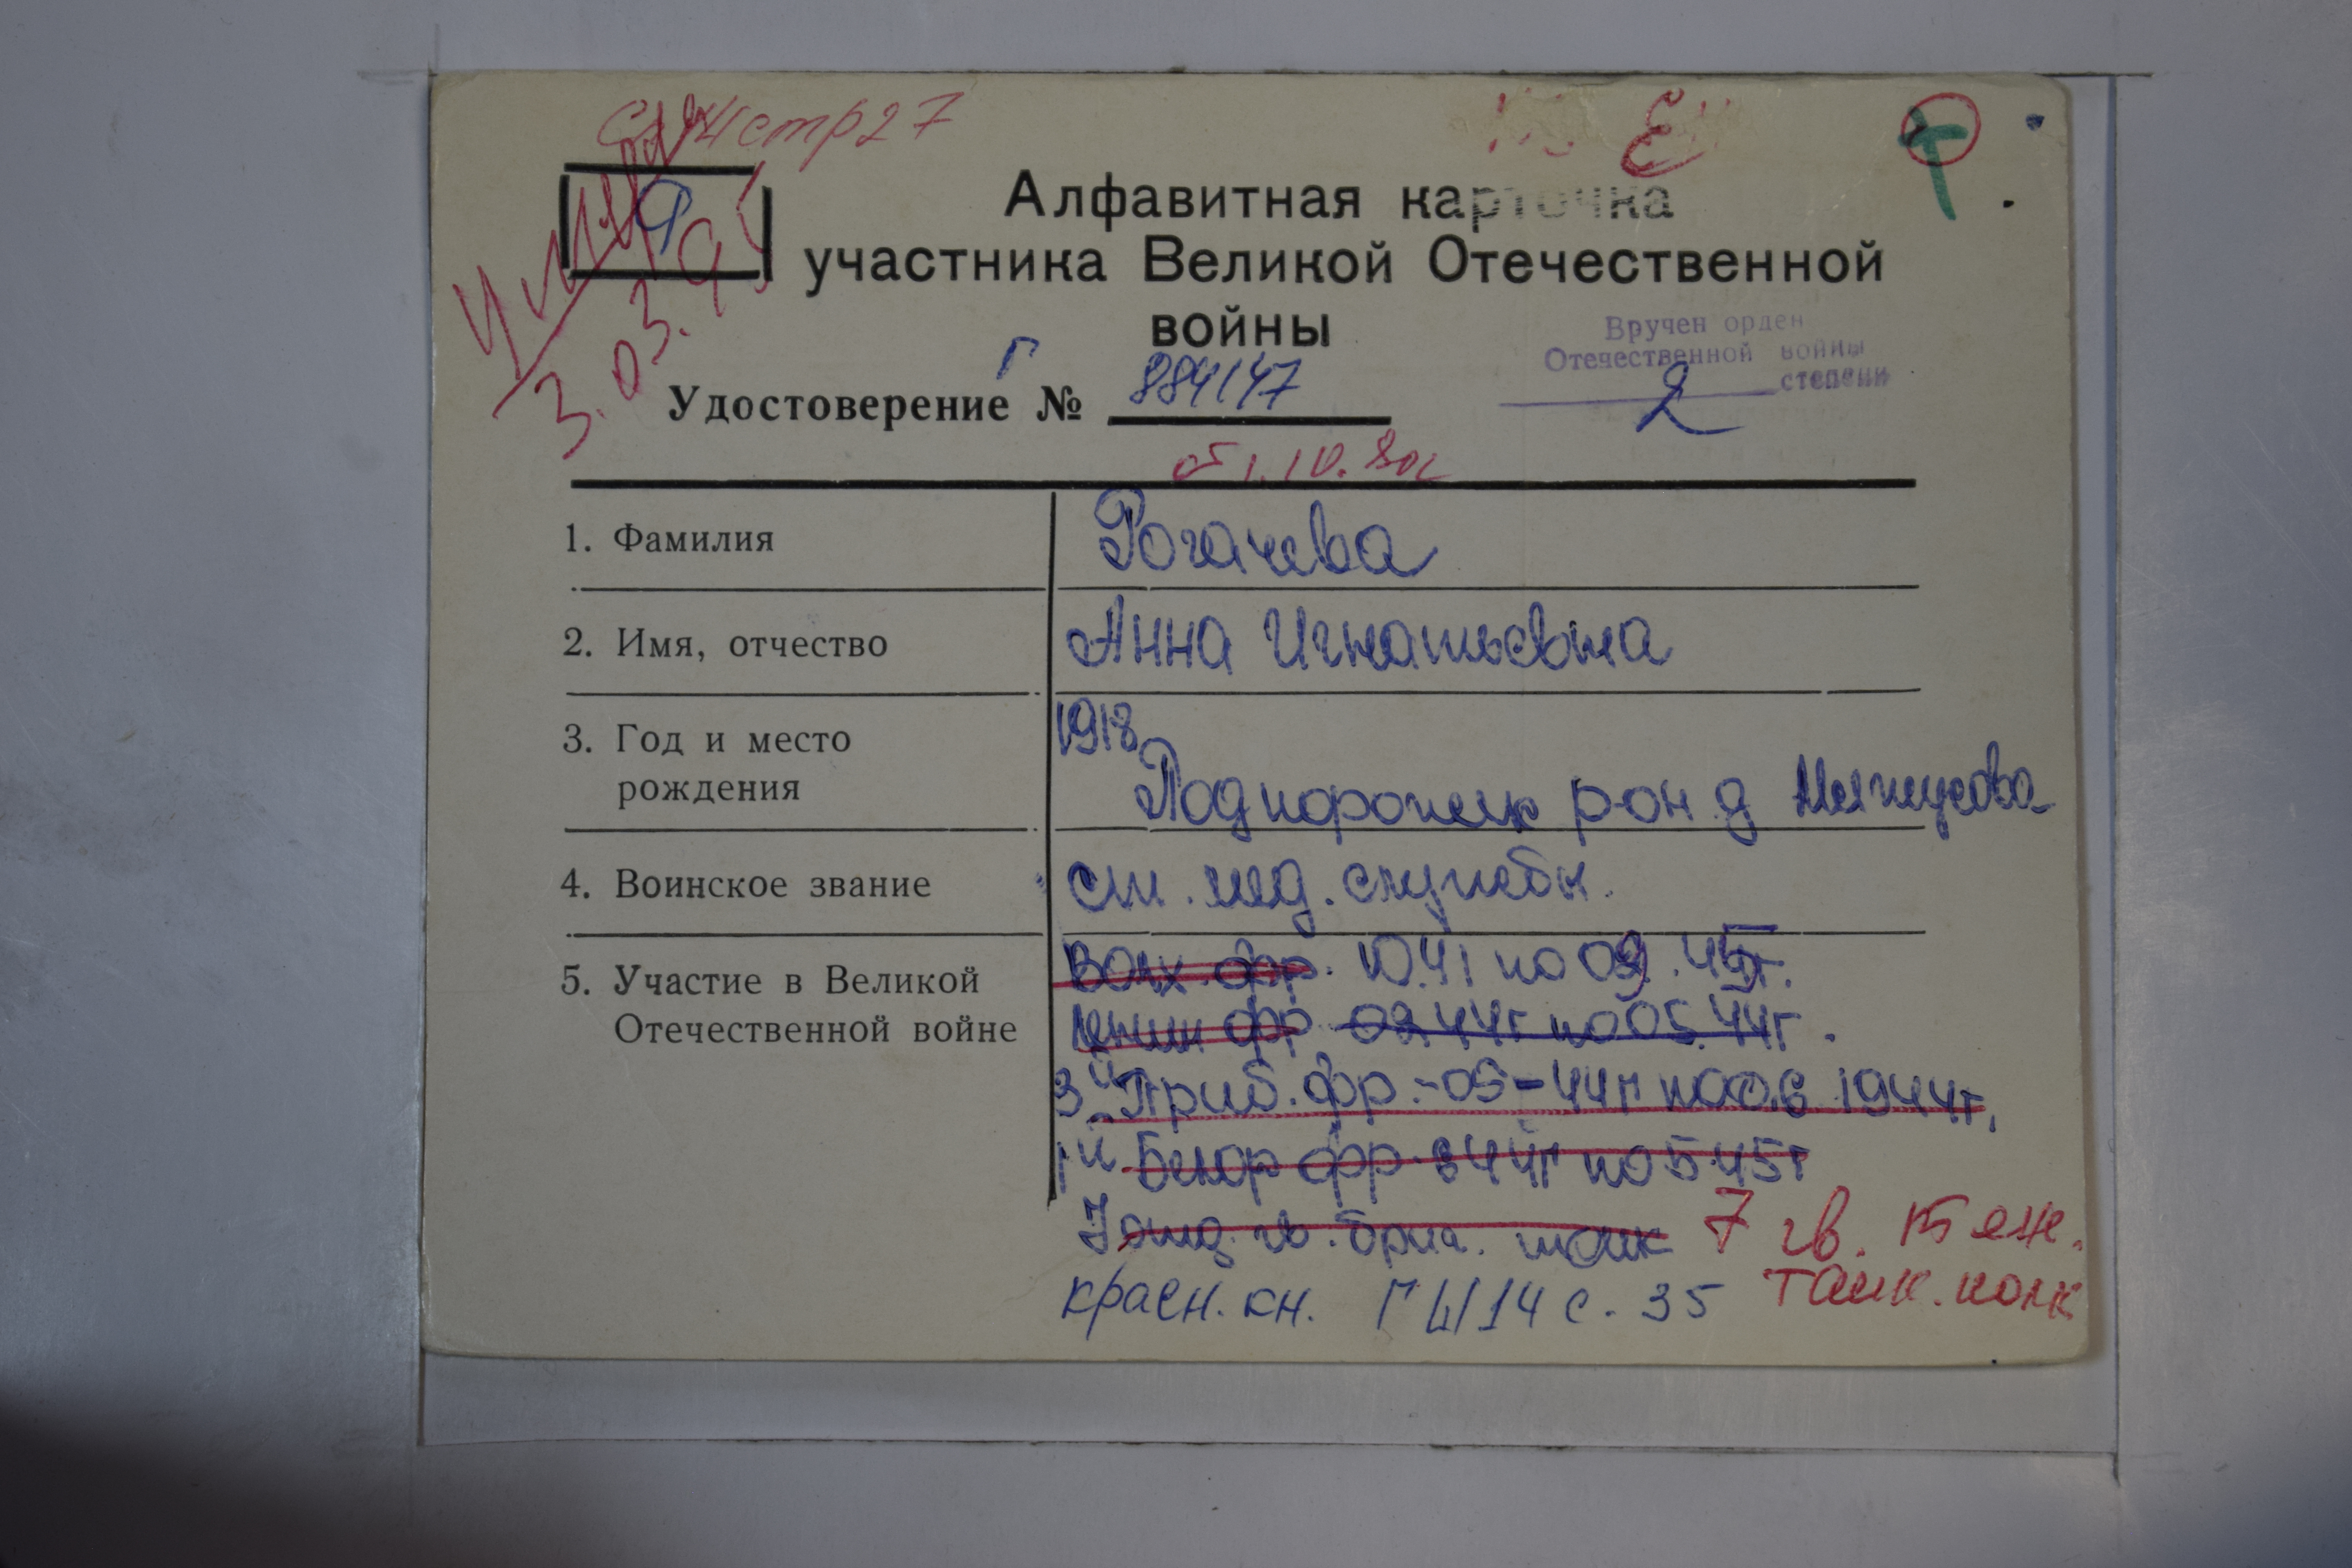 стр 27
Р
умерла
3.03.95
Алфавитная карточка
участника Великой Отечественной
войны
Вручен орден
Отечественной войны
2 степени
Удостоверение Г № 884147
от 1.10.80г
1. Фамилия Рогачева
2. Имя, отчество Анна Игнатьевна
3. Год и место рождения 1918
Подпорожск р-он д
4. Воинское звание с-т. мед. службы.
5. Участие в Великой Отечественной войне
Волх фр. 10.41 по 09.45г.
Ленин фр 02.44г по 05.44г.
3й Приб. фр.-05-44г по 06 1944г.
1й Белор фр 6 44г по 5 45г
7 отд. гв. бриг. танк 7 гв. тяж.
танк. полк
красн. кн. Г 4/14 с. 35